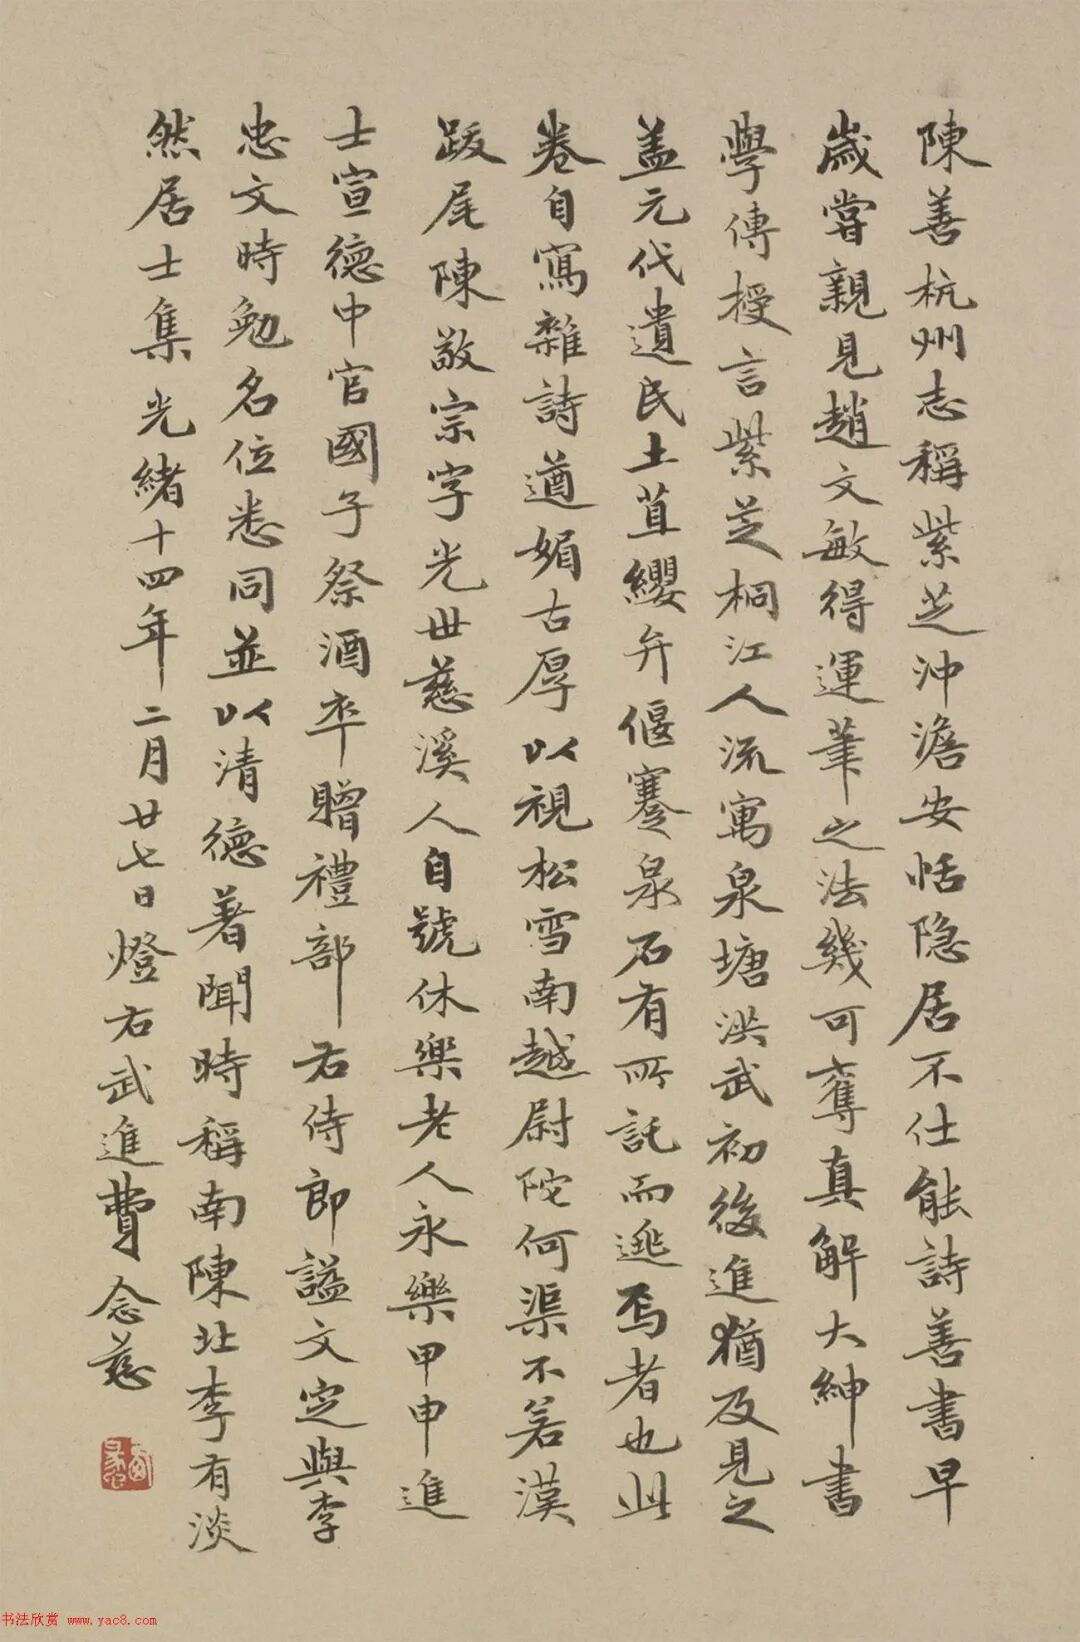 陳善杭州志稱紫芝沖澹安恬隐居不仕能詩善書早
歲嘗親見趙文敏得運筆之法幾可奪真解大紳書
學傳授言紫芝桐江人流寓泉塘洪武初後進猶及見之
盖元代遺民土苴纓弁偃蹇泉石有所託而逃焉者也此
卷自寫雜詩遒媚古厚以視松雪南越尉陀何渠不若漢
跋尾陳敬宗字光世慈溪人自號休樂老人永樂甲申進
士宣德中官國子祭酒卒贈禮部右侍郎謚文定與李
忠文時勉名位悉同並以清德著聞時稱南陳北李有淡
然居士集光緒十四年二月廿七日燈右武進費念慈
书法欣赏 www.yac8.com